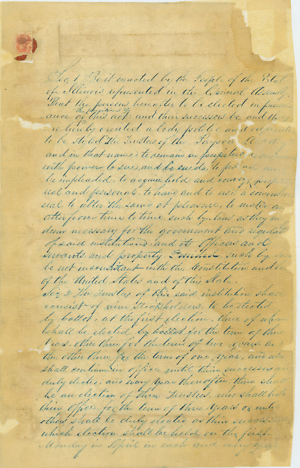 Sec 1 Be it enacted by the People of the State
of Illinois represented in the General Assembly
That the persons hereafter to be elected in pursu
ance of this act and their successors be and they
are hereby created a body politic and corporate
to be styled the Trustees of the
and in that name to remain in perpetual
with power to sue and be sued, to plead and
be impleaded to acquire hold and convey property
real and personal to have and to use a common
seal to alter the same at pleasure, to make and
alter from time to time such by laws as they may
deem necessary for the government and
of said institution and its officers and
servants and property Provided such by laws
be not inconsistent with the Constitution and laws
of the United States and of this State.
Sec 2 The Trustees of the said institution shall
consist of nine Stockholders to be elected
by ballot at the first election, three of whom
shall be elected by ballot for the term of three
years, other three for the term of two years and
the other three for the term of one year, and who
shall continue in office until their successors are
duly elected, and every year thereafter there shall
be an election of three Trustees, who shall hold
their office for the term of three years or until
others shall be duly elected as their successors
which election shall be held on the first
Monday in April in each and every